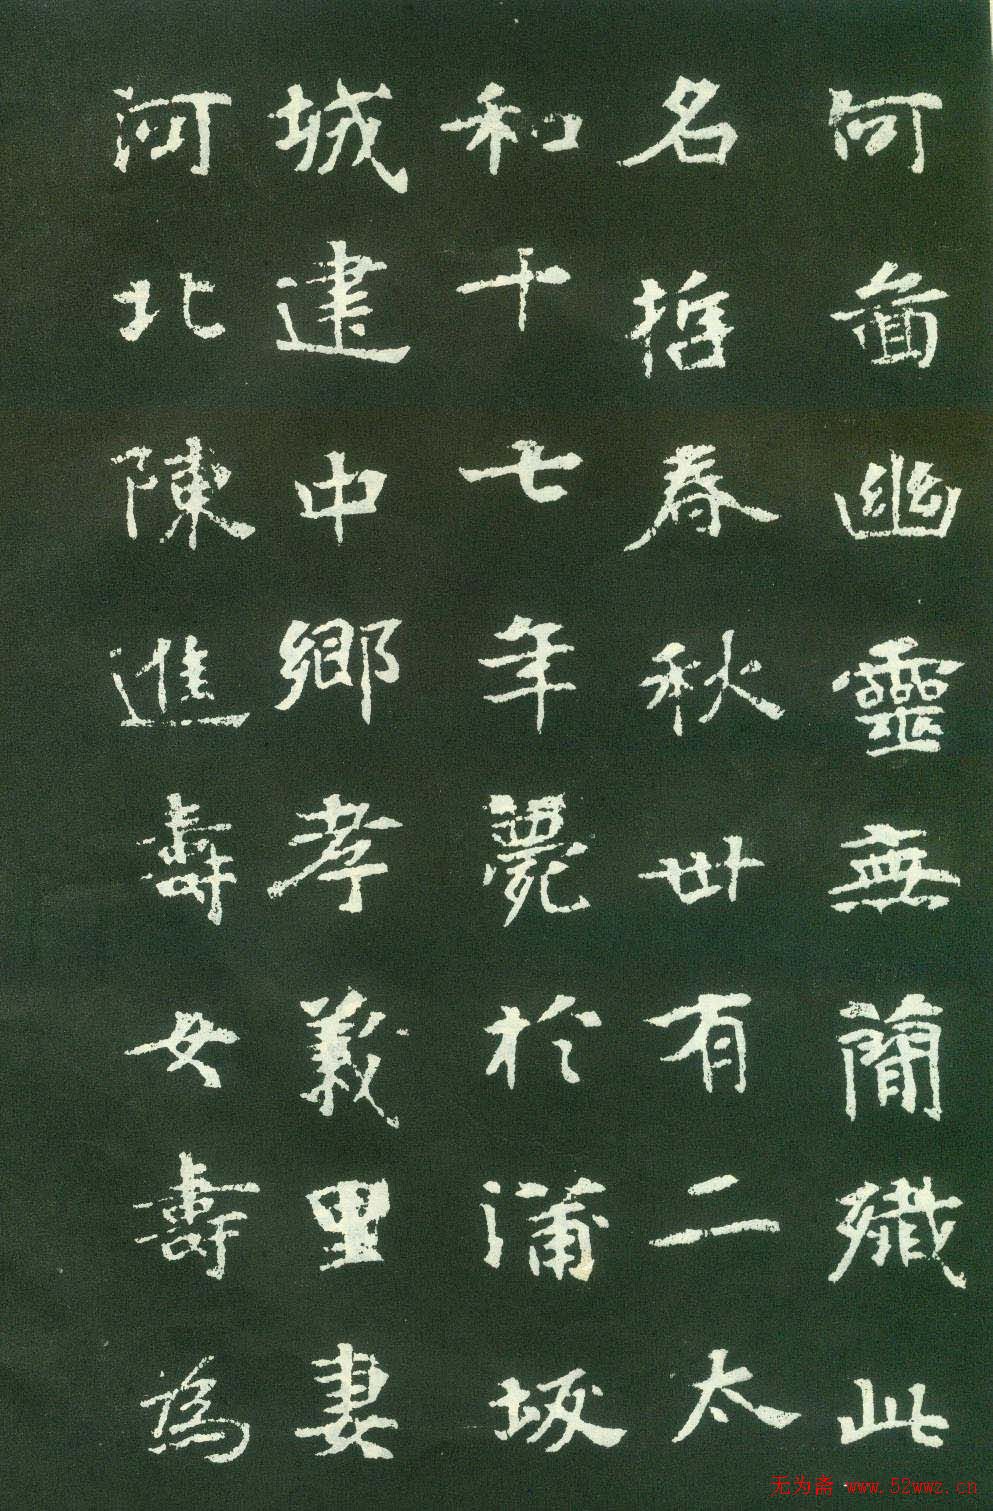 何啚幽靈無簡殲此
名哲春秋卌有二太
和十七年薨於蒲坂
城建中鄉孝義里妻
河北陳進壽女壽為
无为斋 www.52wwz.cn